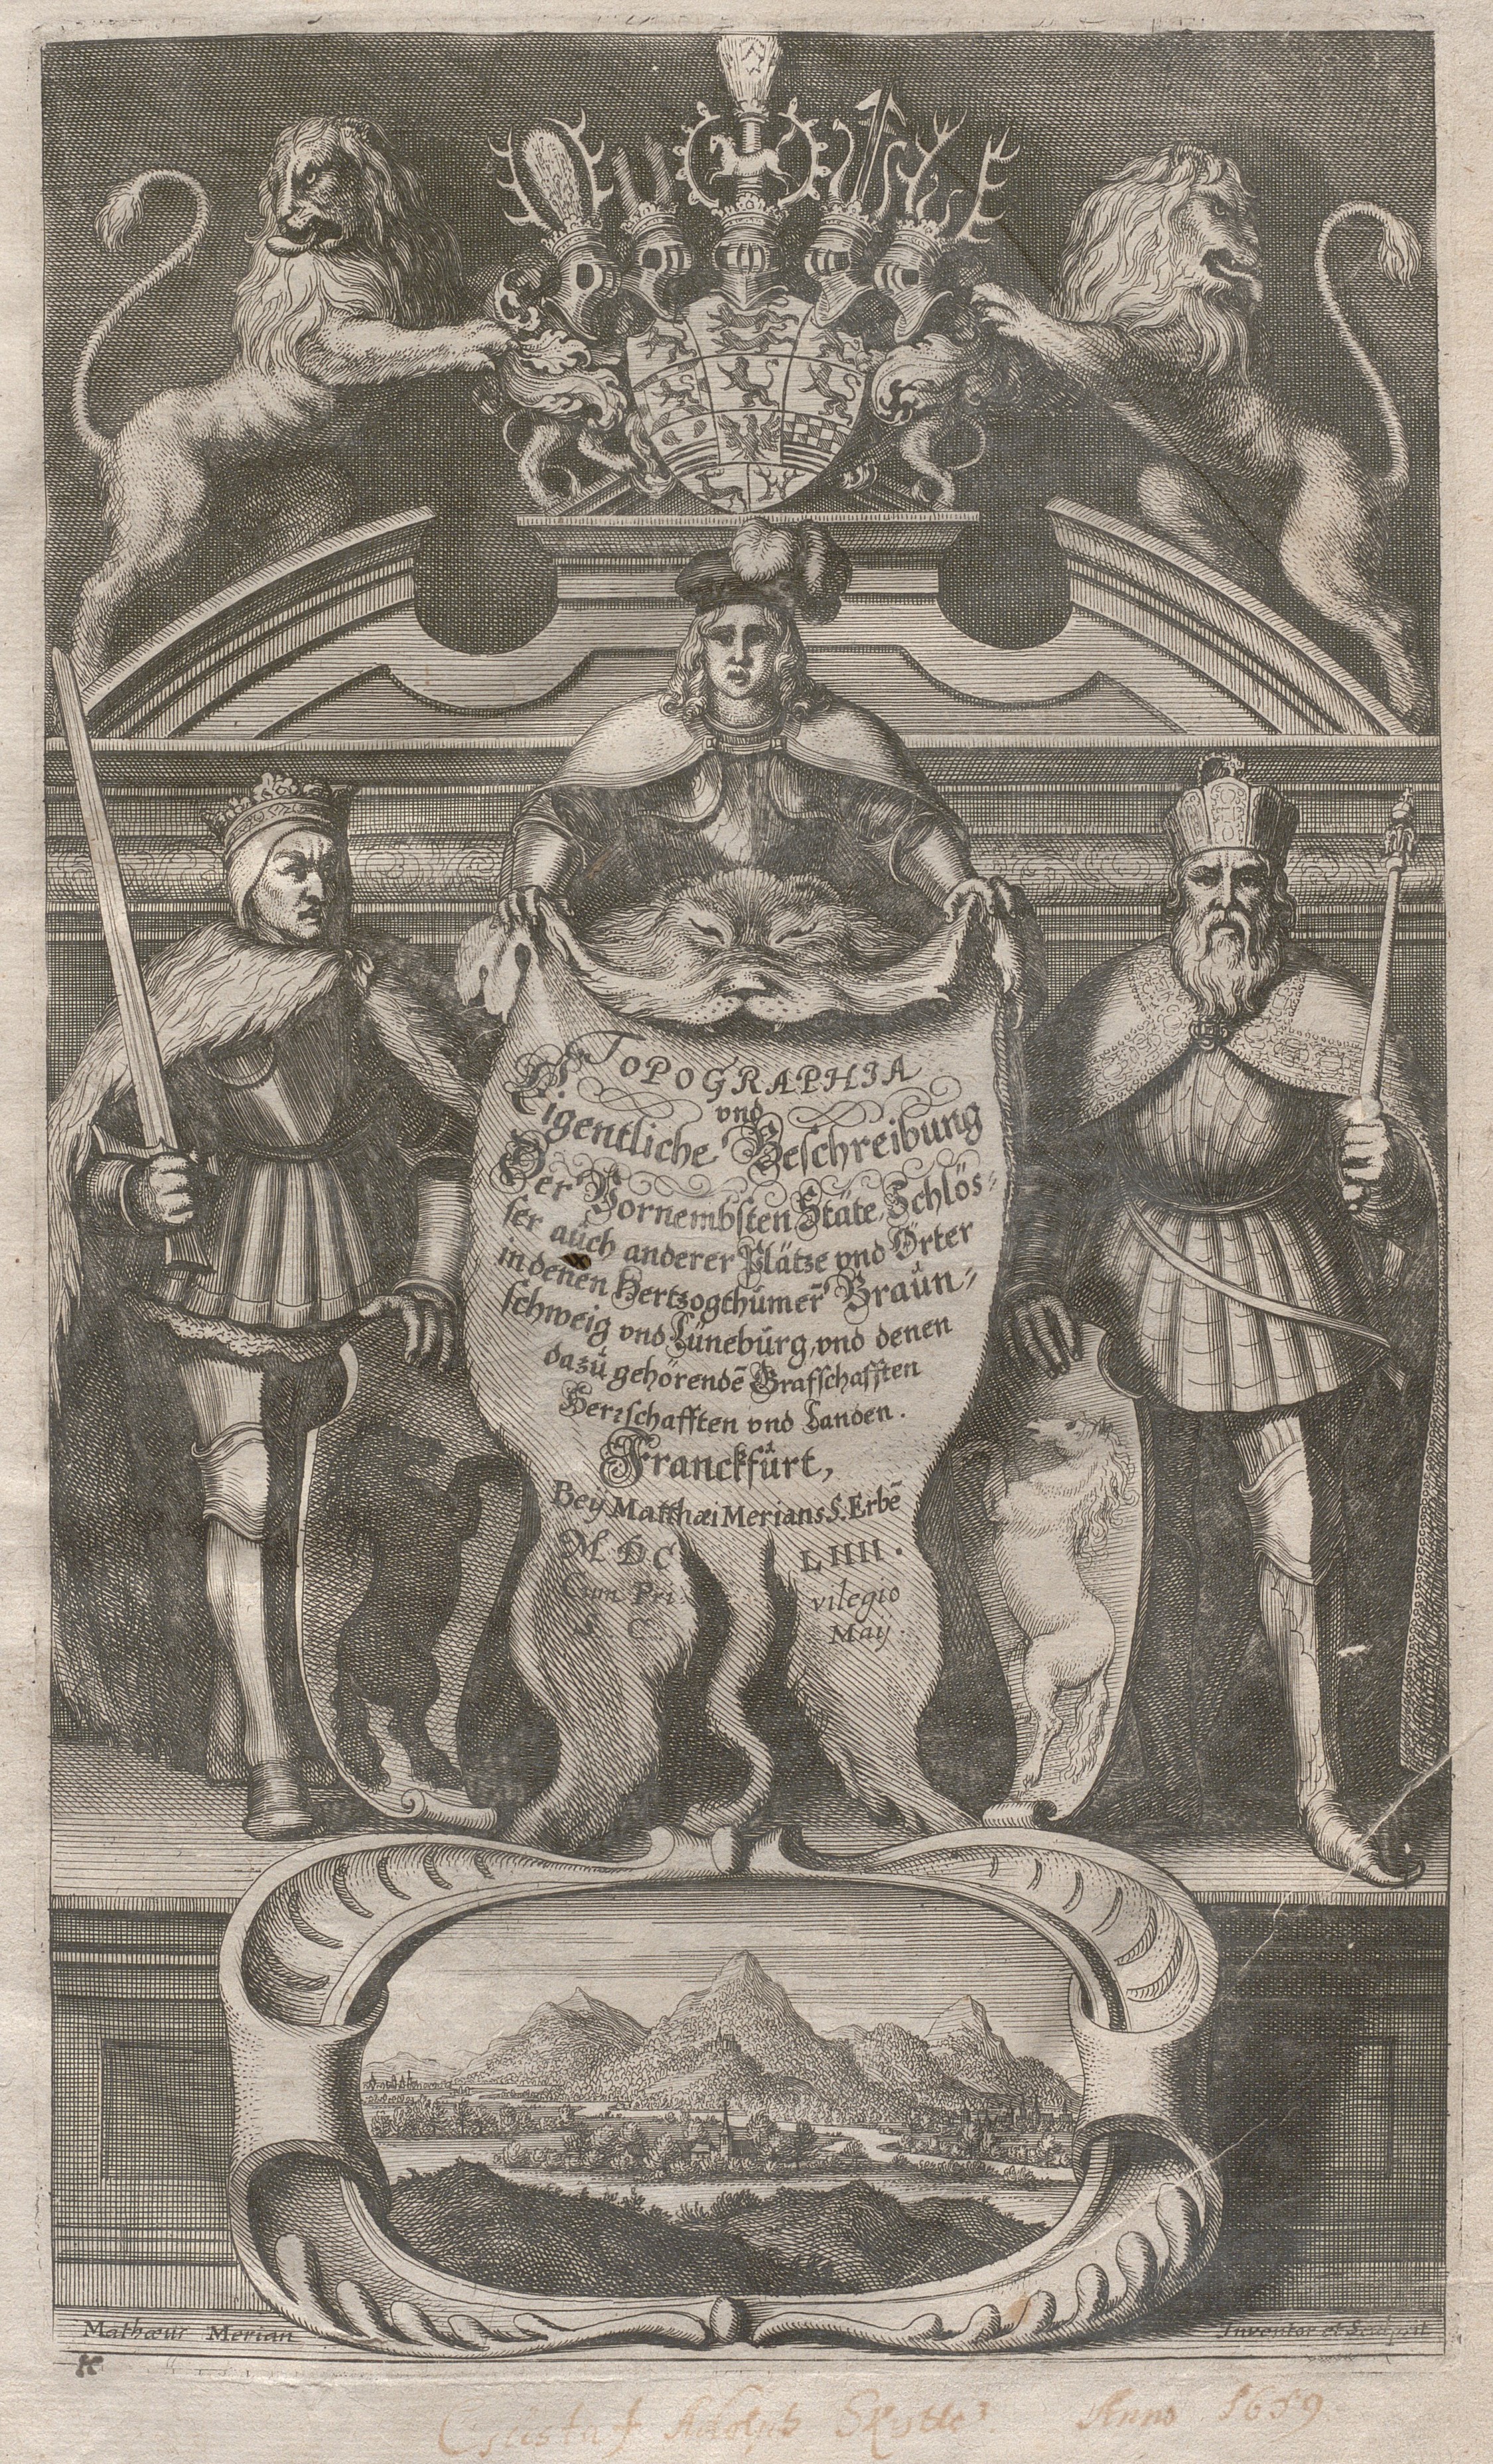 TOPOGRAPHIA
vnd
Eigentliche Beschreibung
Der Vornembsten Stäte, Schlös-
ser auch anderer Plätze vnd Örter
in denen Hertzogthümer̃ Braun-
schweig vnd Lüneburg, vnd denen
dazu gehörendẽ Grafschafften
Herrschafften vnd Landen.
Franckfurt,
Beÿ Matthæi Merians S. Erbẽ
M DC LIIII.
Cum Pri vilegio
S. C. Maÿ.
Mathæus Merian Inventor et Sculpsit
Gustaf Adolph Skytte Anno 1659